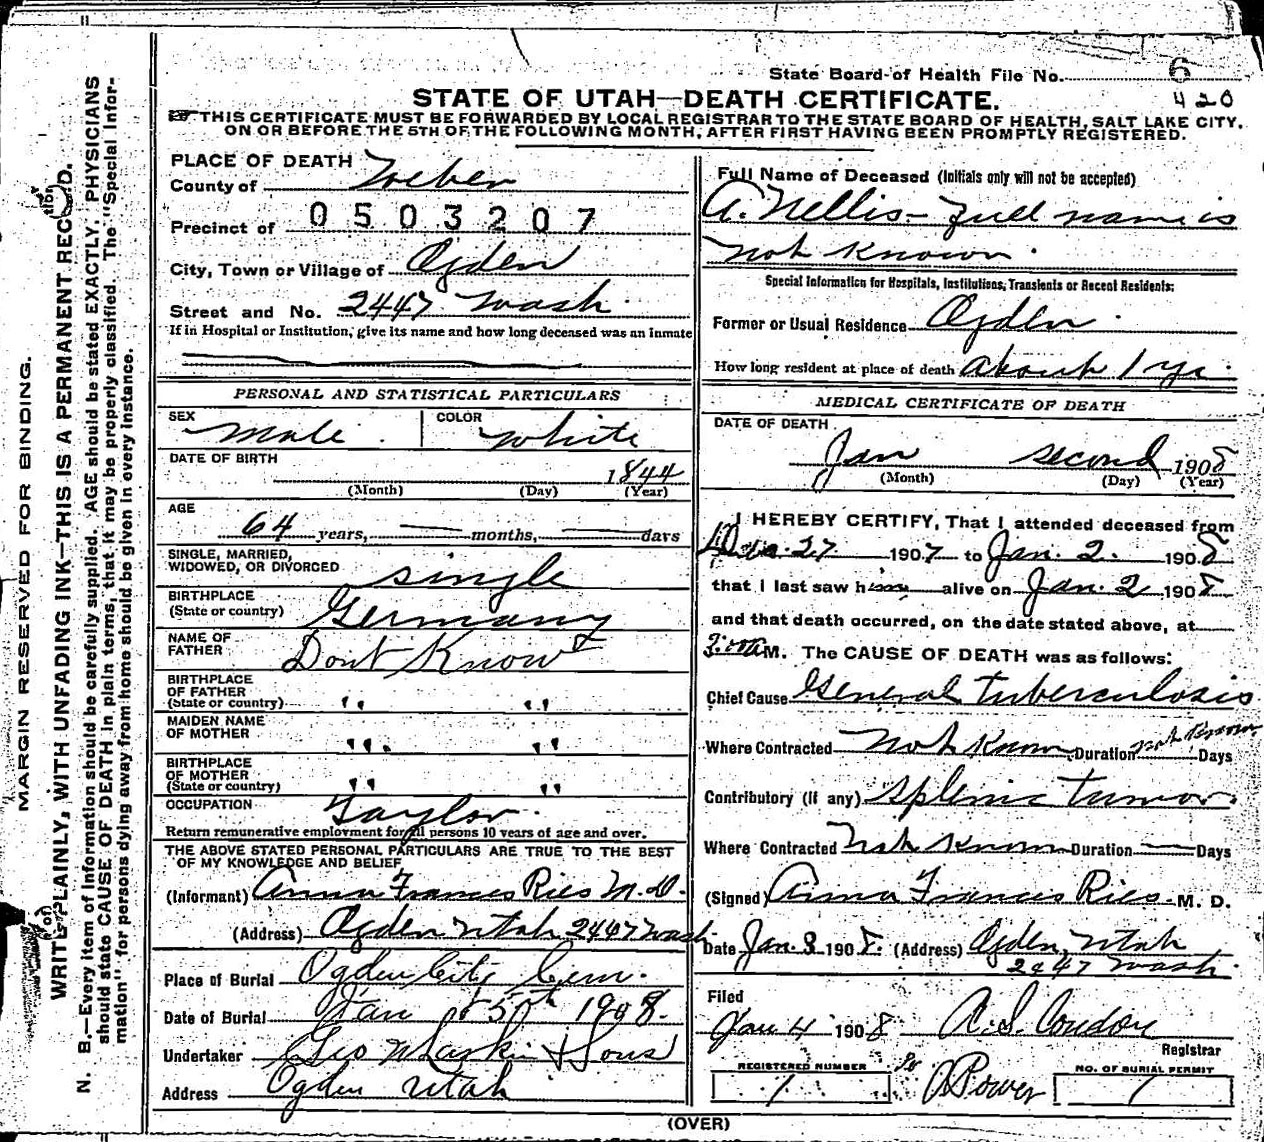 State Board of Health File No. 6
420
STATE OF UTAH—DEATH CERTIFICATE.
THIS CERTIFICATE MUST BE FORWARDED BY LOCAL REGISTRAR TO THE STATE BOARD OF HEALTH, SALT LAKE CITY,
ON OR BEFORE THE 5TH OF THE FOLLOWING MONTH, AFTER FIRST HAVING BEEN PROMPTLY REGISTERED.
MARGIN RESERVED FOR BINDING.
WRITE PLAINLY, WITH UNFADING INK—THIS IS A PERMANENT RECORD.
N. B.—Every item of information should be carefully supplied. AGE should be stated EXACTLY. PHYSICIANS
should state CAUSE OF DEATH in plain terms, that it may be properly classified. The "Special Infor-
mation" for persons dying away from home should be given in every instance.
PLACE OF DEATH
County of Weber
Precinct of 0503207
City, Town or Village of Ogden
Street and No. 2447 Wash.
If in Hospital or Institution, give its name and how long deceased was an inmate
PERSONAL AND STATISTICAL PARTICULARS
SEX Male COLOR White
DATE OF BIRTH 1844
(Month) (Day) (Year)
AGE 64 years, — months, — days
SINGLE, MARRIED,
WIDOWED, OR DIVORCED single
BIRTHPLACE
(State or country) Germany
NAME OF
FATHER Dont Know
BIRTHPLACE
OF FATHER
(State or country) " "
MAIDEN NAME
OF MOTHER " "
BIRTHPLACE
OF MOTHER
(State or country) " "
OCCUPATION Taylor.
Return remunerative employment for all persons 10 years of age and over.
THE ABOVE STATED PERSONAL PARTICULARS ARE TRUE TO THE BEST
OF MY KNOWLEDGE AND BELIEF
(Informant) Anna Frances Ries M.D.
(Address) Ogden Utah 2447 Wash
Place of Burial Ogden City Cem.
Date of Burial Jan 5th 1908.
Undertaker Geo W Larkin & Sons
Address Ogden Utah
Full Name of Deceased (Initials only will not be accepted)
A. Nellis—Full name is
not known.
Special Information for Hospitals, Institutions, Transients or Recent Residents:
Former or Usual Residence Ogden.
How long resident at place of death about 1 yr.
MEDICAL CERTIFICATE OF DEATH
DATE OF DEATH
Jan second 1908
(Month) (Day) (Year)
I HEREBY CERTIFY, That I attended deceased from
Dec. 27 1907 to Jan. 2. 1908
that I last saw him alive on Jan. 2 1908
and that death occurred, on the date stated above, at
3:00 A M. The CAUSE OF DEATH was as follows:
Chief Cause General Tuberculosis
Where Contracted Not Known Duration not Known Days
Contributory (if any) Splenic Tumor
Where Contracted Not Known Duration — Days
(Signed) Anna Frances Ries M. D.
Date Jan. 3 1908. (Address) Ogden, Utah
2447 Wash.
Filed
Jan 4 1908
Registrar
REGISTERED NUMBER
1
Power
NO. OF BURIAL PERMIT
1
(OVER)